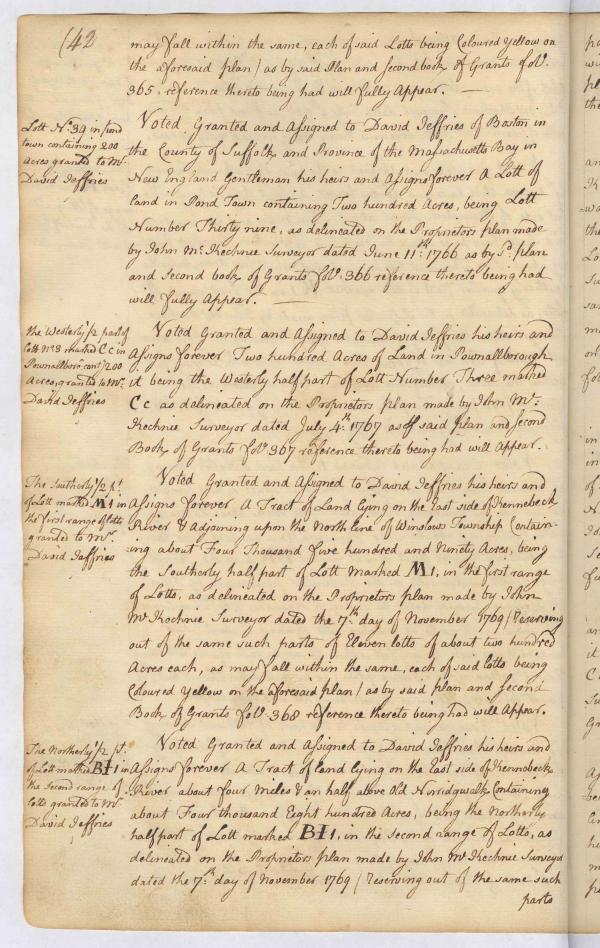 (42
may fall within the same, each of said Lotts being Coloured Yellow on
the aforesaid plan / as by said Plan and Second book of Grants folo.
365, reference thereto being had will fully Appear.
Lott No. 39 in pond
town containing 200
Acres granted to Mr.
David Jeffries
Voted Granted and Assigned to David Jeffries of Boston in
the County of Suffolk and Province of the Massachusetts Bay in
New England Gentleman his heirs and Assigns forever A Lott of
land in Pond Town containing Two hundred Acres, being Lott
Number Thirty nine, as delineated on the Proprietors plan made
by John Mc. Kechnie Surveyor dated June 11th. 1766 as by sd. plan
and Second book of Grants folo. 366 reference thereto being had
will fully Appear.
the Westerly 1/2 part of
Lott No. 3 marked Cc in
Pownallboro cont. 200
Acres, granted to Mr.
David Jeffries
Voted Granted and Assigned to David Jeffries his heirs and
Assigns forever Two hundred Acres of Land in Pownallborough
it being the Westerly half part of Lott Number Three marked
Cc as delineated on the Proprietors plan made by John Mc.
Kechnie Surveyor dated July 4th. 1767 as of said plan and Second
Book of Grants folo. 367 reference thereto being had will Appear.
The Southerly 1/2 pt.
of Lott marked M1 in
the first range of lotts
granted to Mr.
David Jeffries
Voted Granted and Assigned to David Jeffries his heirs and
Assigns forever A Tract of Land lying on the East side of Kennebeck
River & Adjoining upon the North line of Winslow Township Contain-
ing about Four Thousand five hundred and Ninety Acres, being
the Southerly half part of Lott Marked M1, in the first range
of Lotts, as delineated on the Proprietors plan made by John
Mc Kechnie Surveyor dated the 7th. day of November 1769 / Reserving
out of the same such parts of Eleven lotts of about two hundred
Acres each, as may fall within the same, each of said lotts being
Coloured Yellow on the aforesaid plan / as by said plan and Second
Book of Grants folo. 368 reference thereto being had will Appear.
The Northerly 1/2 pt.
of Lott marked BH1 in
the second range of
lotts granted to Mr.
David Jeffries
Voted Granted and Assigned to David Jeffries his heirs and
Assigns forever A Tract of land lying on the East side of Kennebeck
River about four Miles & an half above Old Norridgwalk Containing
about Four thousand Eight hundred Acres, being the Northerly
half part of Lott marked BH1, in the second range of Lotts, as
delineated on the Proprietors plan made by John Mc Kechnie Surveyor
dated the 7th. day of November 1769 / Reserving out of the same such
parts